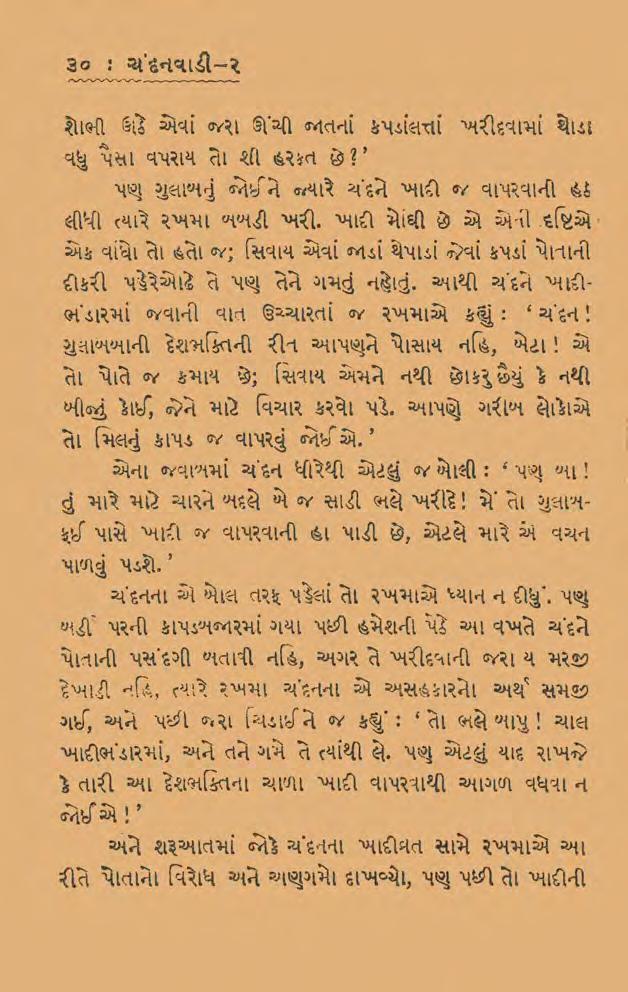 ૩૦ : ચંદનવાડી–૨
શોભી ઊઠે એવાં જરા ઊંચી જાતનાં કપડાંલત્તાં ખરીદવામાં થોડા
વધુ પૈસા વપરાય તો શી હરકત છે?’
પણ ગુલાબનું જોઈને જ્યારે ચંદને ખાદી જ વાપરવાની હઠ
લીધી ત્યારે રખમા બબડી ખરી. ખાદી મોંઘી છે એ એની દૃષ્ટિએ
એક વાંધો તો હતો જ; સિવાય એવાં જાડાં થેપાડાં જેવાં કપડાં પોતાની
દીકરી પહેરેઓઢે તે પણ તેને ગમતું નહોતું. આથી ચંદને ખાદી-
ભંડારમાં જવાની વાત ઉચ્ચારતાં જ રખમાએ કહ્યું : ‘ ચંદન !
ગુલાબબાની દેશભક્તિની રીત આપણને પોસાય નહિ, બેટા ! એ
તો પોતે જ કમાય છે; સિવાય એમને નથી છોકરુછૈયું કે નથી
બીજું કોઈ, જેને માટે વિચાર કરવો પડે. આપણે ગરીબ લોકોએ
તો મિલનું કાપડ જ વાપરવું જોઈએ.’
એના જવાબમાં ચંદન ધીરેથી એટલું જ બોલી : ‘ પણ બા !
તું મારે માટે ચારને બદલે બે જ સાડી ભલે ખરીદે! મેં તો ગુલાબ-
ફઈ પાસે ખાદી જ વાપરવાની હા પાડી છે, એટલે મારે એ વચન
પાળવું પડશે.’
ચંદનના એ બોલ તરફ પહેલાં તો રખમાએ ધ્યાન ન દીધું. પણ
બડી પરની કાપડબજારમાં ગયા પછી હમેશની પેઠે આ વખતે ચંદને
પોતાની પસંદગી બતાવી નહિ, અગર તે ખરીદવાની જરા ય મરજી
દેખાડી નહિ, ત્યારે રખમા ચંદનના એ અસહકારનો અર્થ સમજી
ગઈ, અને પછી જરા ચિડાઈને જ કહ્યું : ‘ તો ભલે બાપુ ! ચાલ
ખાદીભંડારમાં, અને તને ગમે તે ત્યાંથી લે. પણ એટલું યાદ રાખજે
કે તારી આ દેશભક્તિના ચાળા ખાદી વાપરવાથી આગળ વધવા ન
જોઈએ !’
અને શરૂઆતમાં જોકે ચંદનના ખાદીવ્રત સામે રખમાએ આ
રીતે પોતાનો વિરોધ અને અણગમો દાખવ્યો, પણ પછી તો ખાદીની